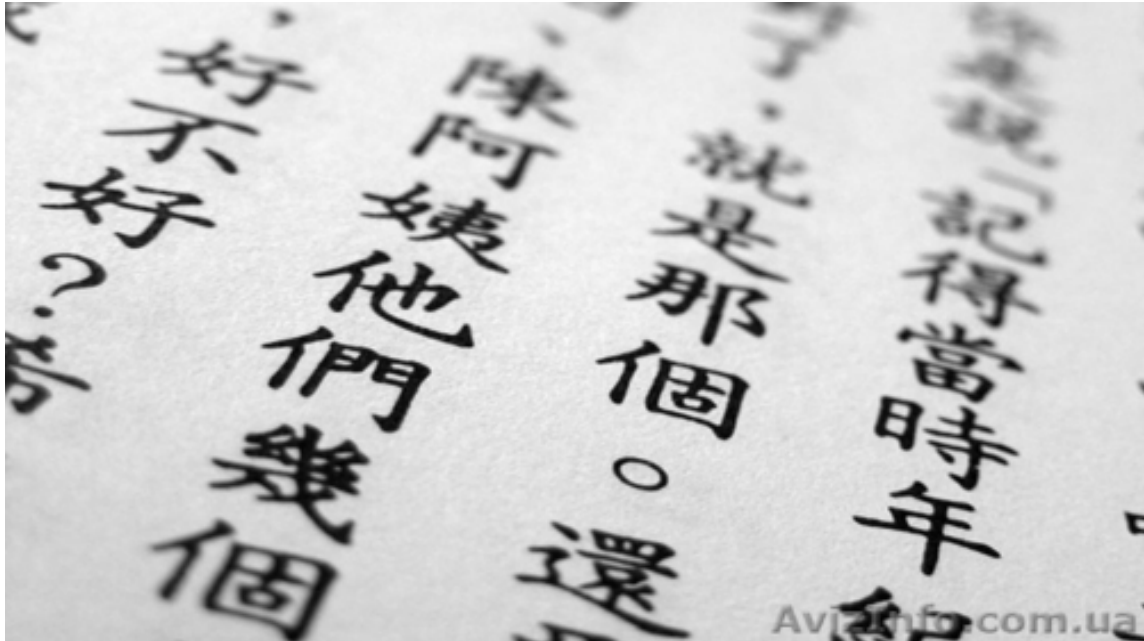 說「記得當時年
了，就是那個。還
、陳阿姨他們幾個
，好不好？
AvizInfo.com.ua